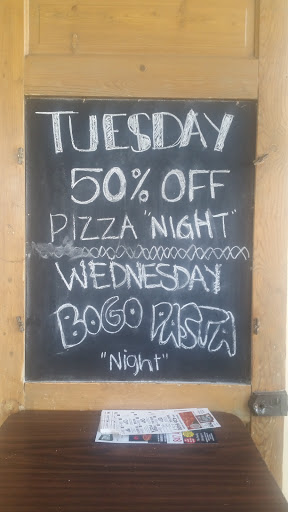 TUESDAY
50% OFF
PIZZA "NIGHT"
WEDNESDAY
BOGO PASTA
"Night"